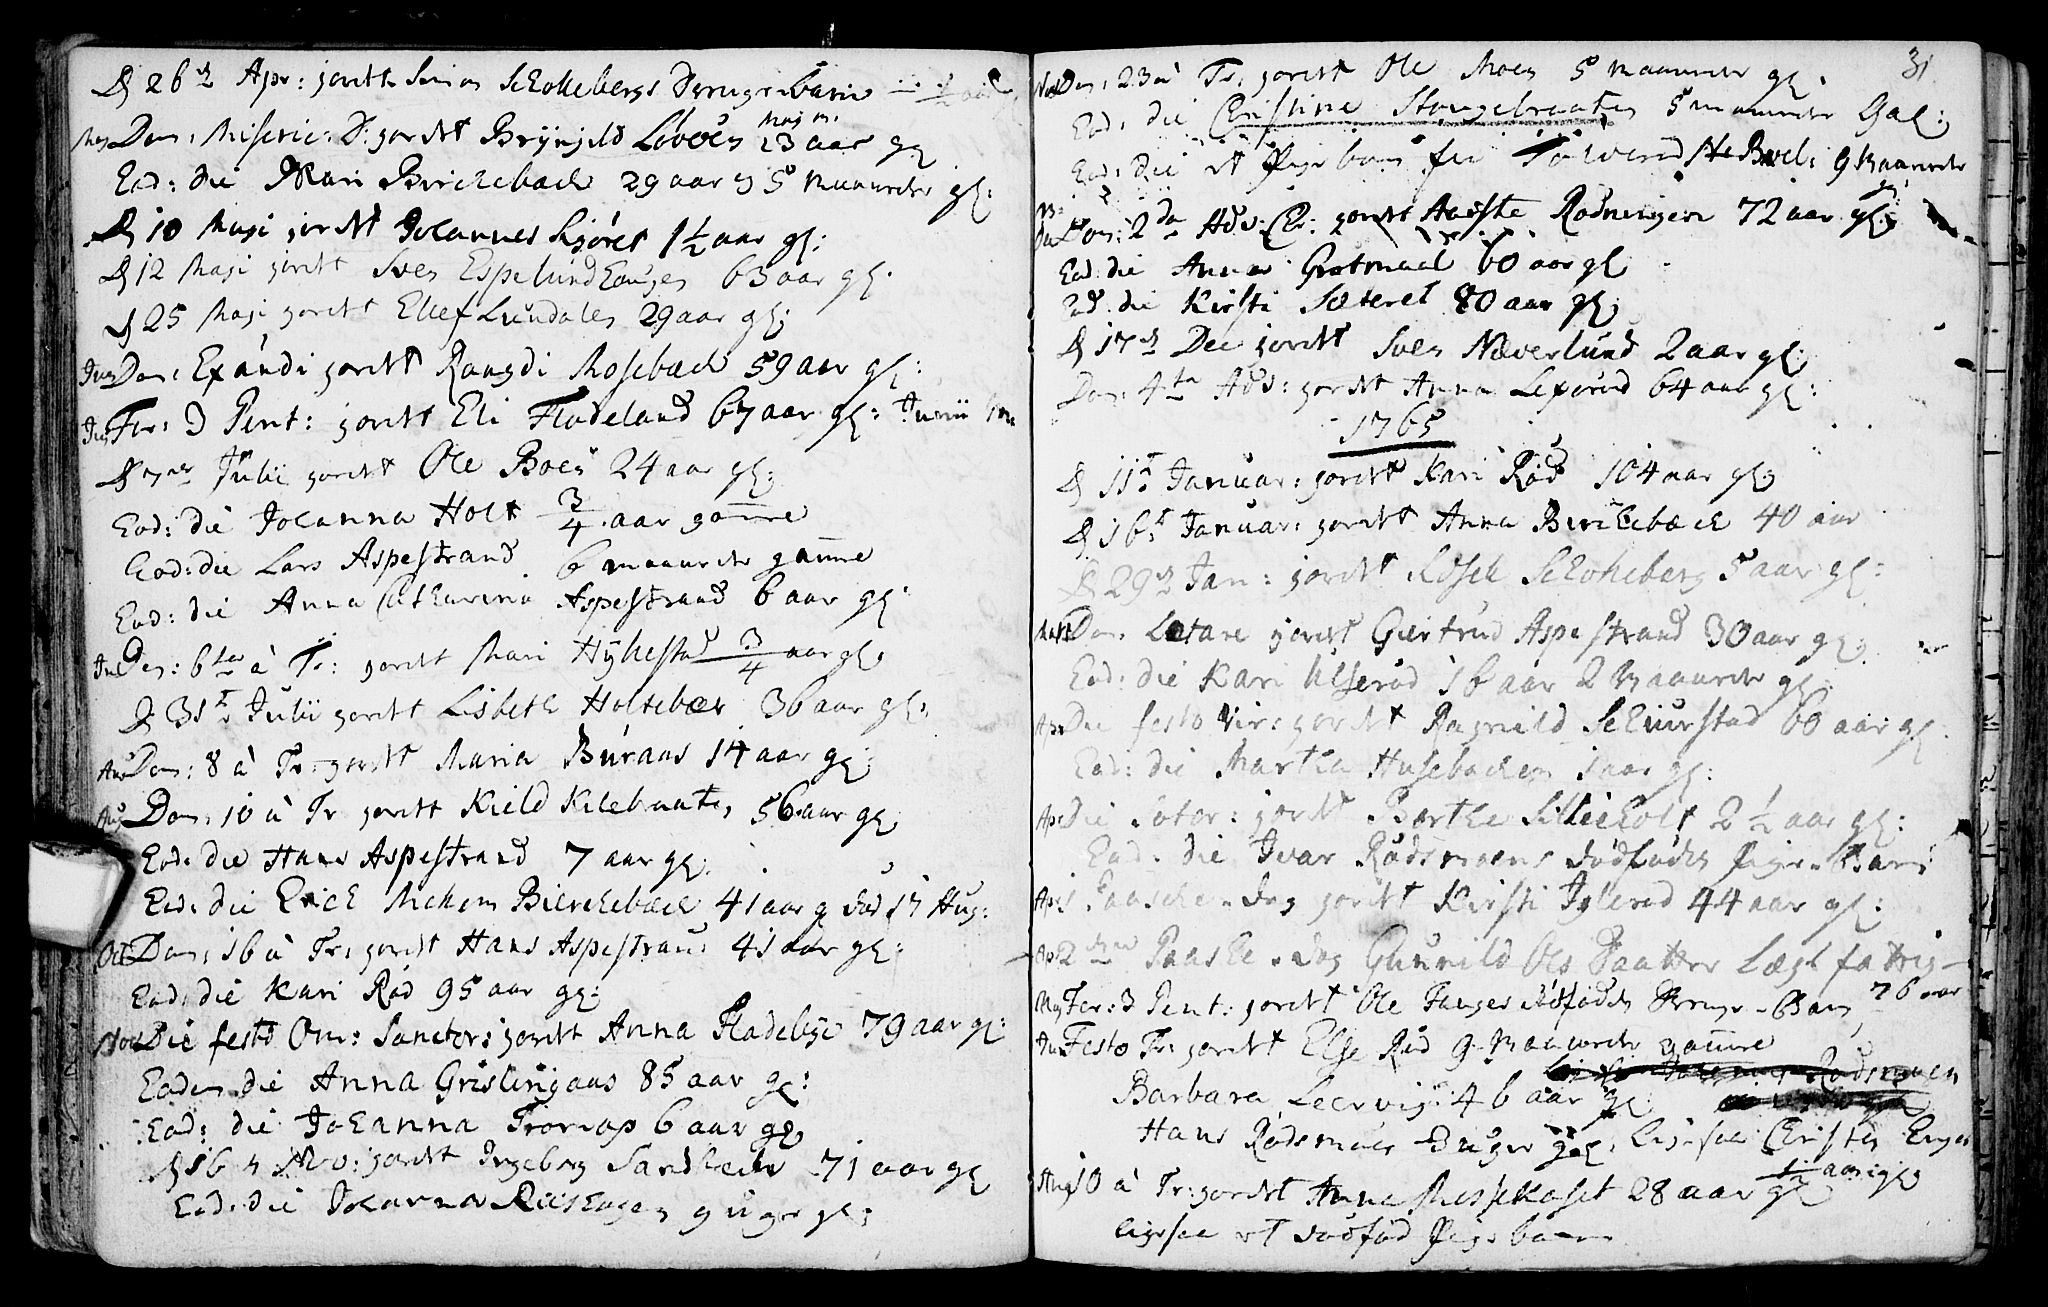 D 26de Apr: jordet Simon Scholkebergs Drenge-Barn
Maj Dom: Miseric: D: jordet Brynjeld Loboen Maj m. 23 aar gl
Eod: die Mari Birchebæch 29 aar og 5 maaneder gl:
D 10 Maji jordet Johannes Liøret 1 1/2 aar gl:
D 12 Maji jordet Sven Espelundhougen 63 aar gl.
D 25 Maji jordet Ellef Lundalen 29 aar gl:
Jun Dom: Exaudi jordet Rangdi Mosebæch 59 aar gl:
Jun Fer: 3 Pent: jordet Eli Fladeland 67 aar gl: Junii
D 7de Julii jordet Ole Boen 24 aar gl:
Eod: die Johanna Holt 3/4 aar gamle
Eod: die Lars Aspestrand 6 maaneder gamle
Eod: die Anna Catharina Aspestrand 6 aar gl:
Jul Dom: 6ta à Tr: jordet Mari Hykestad 3/4 aar gl:
D. 31t Julii jordet Lisbeth Holtebæk 36 aar gl:
Aug Dom: 8 à Tr: jordet Maria Buraas 14 aar gl:
Aug Dom: 10 à Tr jordet Kield Kilebraaten 56 aar gl:
Eod: die Hans Aspestrand 7 aar gl:
Eod: die Erich Birchebæch 41 aar g død 17 Aug:
Oct Dom: 16 à Tr: jordet Hans Aspestrand 41 aar gl:
Eod: die Kari Rød 95 aar gl:
Nov Die festo Om: Sanctor: jordet Anna Fladebye 79 aar gl:
Eodem die Anna Grislingaas 85 aar gl:
Eod: die Johanna Trorrap 6 aar gl:
D 16 Nov: jordet Ingeborg Sandbeck 71 aar gl
Eod: die Johanna Riishagen 9 uger gl:
31
Nov Dom: 23 à Tr: jordet Ole Moen 5 maaneder gl.
Eod: die Christine Stongebraaten 5 maaneder Gal:
Eod: die et Pige barn fra 9 maaneder
Dom: 2da Adv: Chr: jordet Aaste Rødningen 72 aar gl:
Eod: die Anna Grøtmaal 60 aar gl
Eod: die Kirsti Sæteret 80 aar gl:
D 17de Dec jordet Sven Næverlund 2 aar gl:
Dom: 4ta Adv: jordet Anna Lexerud 64 aar gl:
1765
D 11t Januar: jordet Kari Rød 104 aar gl:
D 16t Januar: jordet Anna Birchebæch 40 aar
D 29de Jan: jordet Scholkeberg 5 aar gl:
Mart Dom. Lætare jordet Giertrud Aspestrand 30 aar gl.
Eod: die Kari Ulserød 16 aar 2 Maaneder gl
Apr Die festo Vir: jordet Ragnild Schiurstad 60 aar gl
Eod: die Martha Husebachen 1 aar gl:
Apr Die jordet Barthe Sillieholt 2 1/2 aar gl:
Eod: die Ivar Rødsmoens dødfødde Pige-Barn
Apr 1. Paaske-dag jordet Kirsti Iglerød 44 aar gl:
Apr 2den Paaske-dag Gunild Ols Daatter Lægs fattig
76 aar
Maj Fer: 3 Pent: jordet Ole dødfødde Drenge-Barn
Jun Festo Tr: jordet Else Rød 9 Maaneder gamle
Barbara Leervig: 46 aar gl
Hans Rødsmoen Uger gl, ligesaa Christen Engen
1/2 aar gl
Aug 10 à Tr: jordet Anne Messekaset 28 aar gl
ligesaa et dødfød Pige barn